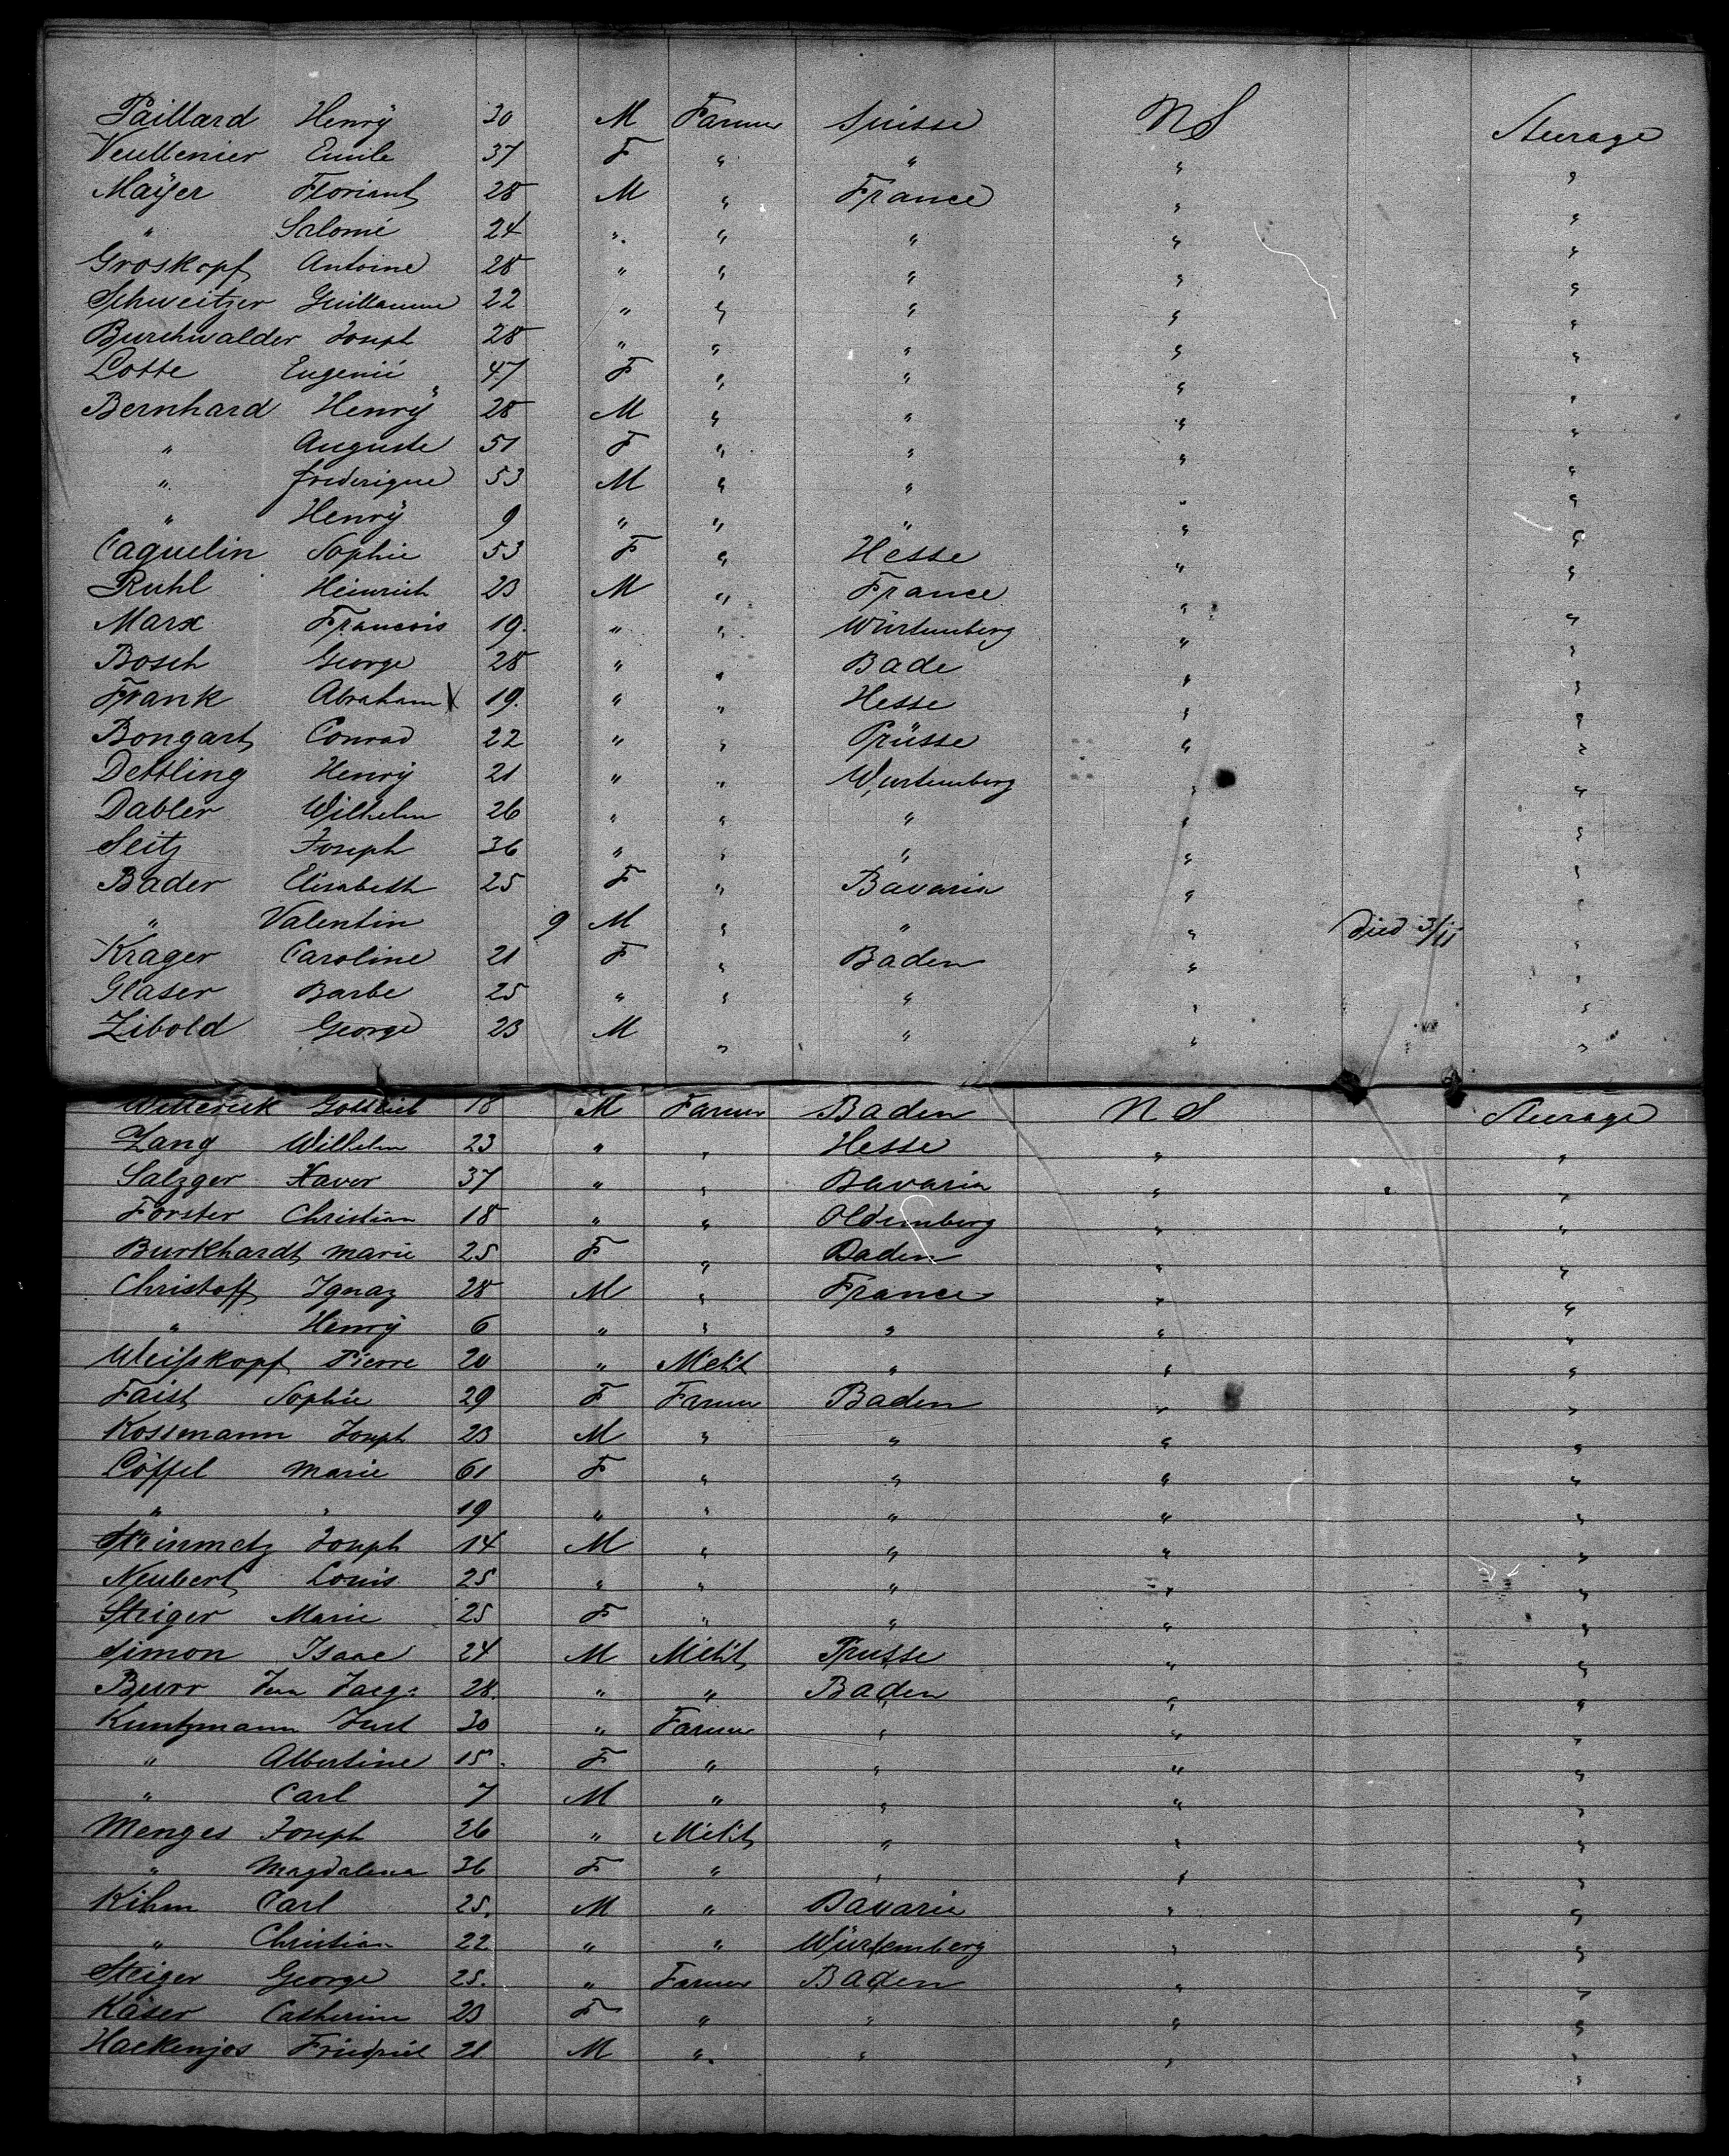 Paillard Henry 30 M Farmer Suisse N S Steerage
Veullenier Emile 37 F " " " "
Mayer Floriant 28 M " France " "
" Salomé 24 " " " " "
Groskopf Antoine 28 " " " " "
Schweitzer Guillaume 22 " " " " "
Burchwalder Joseph 28 " " " " "
Lotte Eugenié 47 F " " " "
Bernhard Henry 28 M " " " "
" Auguste 51 F " " " "
" frederique 53 M " " " "
" Henry 9 " " " " "
Caquelin Sophie 53 F " Hesse " "
Ruhl Heinrich 23 M " France " "
Marx Francois 19. " " Würtemberg " "
Bosch George 28 " " Bade " "
Frank Abraham X 19. " " Hesse " "
Bongart Conrad 22 " " Prüsse " "
Dettling Henry 21 " " Wurtemberg " "
Dabler Wilhelm 26 " " " " "
Seitz Joseph 36 " " " " "
Bader Elisabeth 25 F " Bavaria " "
" Valentin 9 M " " " Died 3/11 "
Krager Caroline 21 F " Baden " "
Glaser Barbe 25 " " " " "
Zibold George 23 M " " " "
Gottlieb 18 M Farmer Baden N S Steerage
Zang Wilhelm 23 " " Hesse " "
Salzger Xaver 37 " " Bavaria " "
Forster Christian 18 " " Oldemberg " "
Burkhardt marie 25 F " Baden " "
Christoff Ignaz 28 M " France " "
" Henry 6 " " " " "
Weißkopf Pierre 20 " Mcht " " "
Faist Sophie 29 F Farmer Baden " "
Kossmann Joseph 23 M " " " "
Löffel marie 61 F " " " "
" " 19 " " " " "
Steinmetz Joseph 14 M " " " "
Neubert Louis 25 " " " " "
Steiger Marie 25 F " " " "
Simon Isaac 24 M Mcht Prusse " "
Burr Jean Jacq: 28. " " Baden " "
Kuntzmann 30 " Farmer " " "
" Albertine 15. F " " " "
" Carl 7 M " " " "
Menges Joseph 26 " Mcht " " "
" Magdalena 36 F " " " "
Kihm Carl 25. M " Bavaria " "
" Christian 22 " " Würtemberg " "
Steiger George 25. " Farmer Baden " "
Käser Catherine 23 F " " " "
Hackenjos Friedrich 21. M " " " "
"